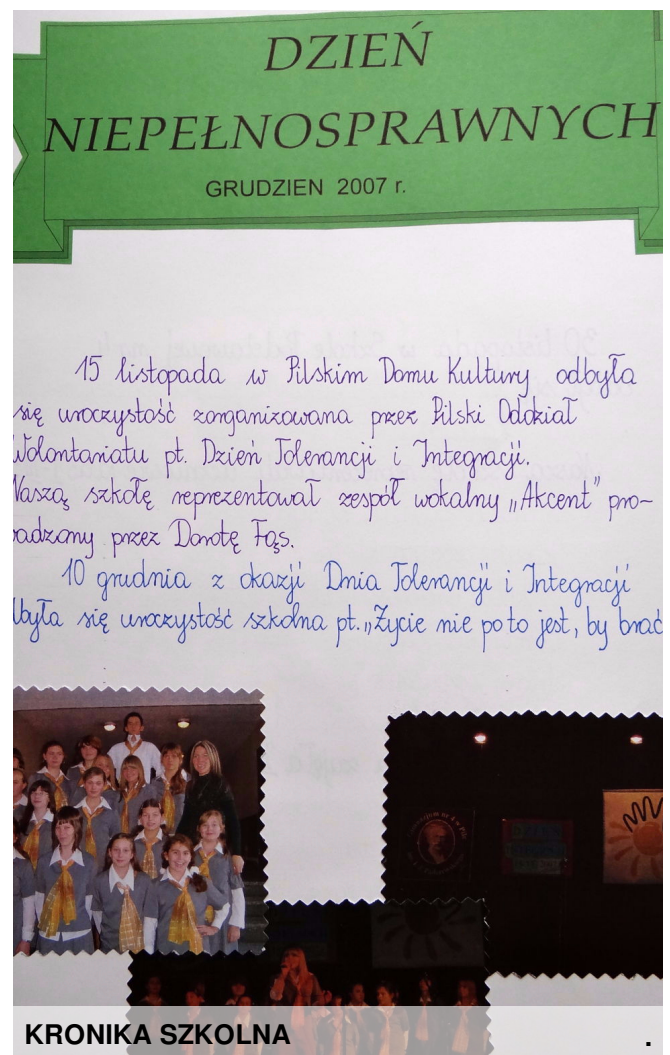 DZIEŃ
NIEPEŁNOSPRAWNYCH
GRUDZIEN 2007 r.
15 listopada w Pilskim Domu Kultury odbyła
się uroczystość zorganizowana przez Pilski Oddział
Wolontariatu pt. Dzień Tolerancji i Integracji.
Naszą szkołę reprezentował zespół wokalny „Akcent" pro-
wadzony przez Dorotę Fąs.
10 grudnia z okazji Dnia Tolerancji i Integracji
dbyła się uroczystość szkolna pt. „Życie nie po to jest, by brać
KRONIKA SZKOLNA .